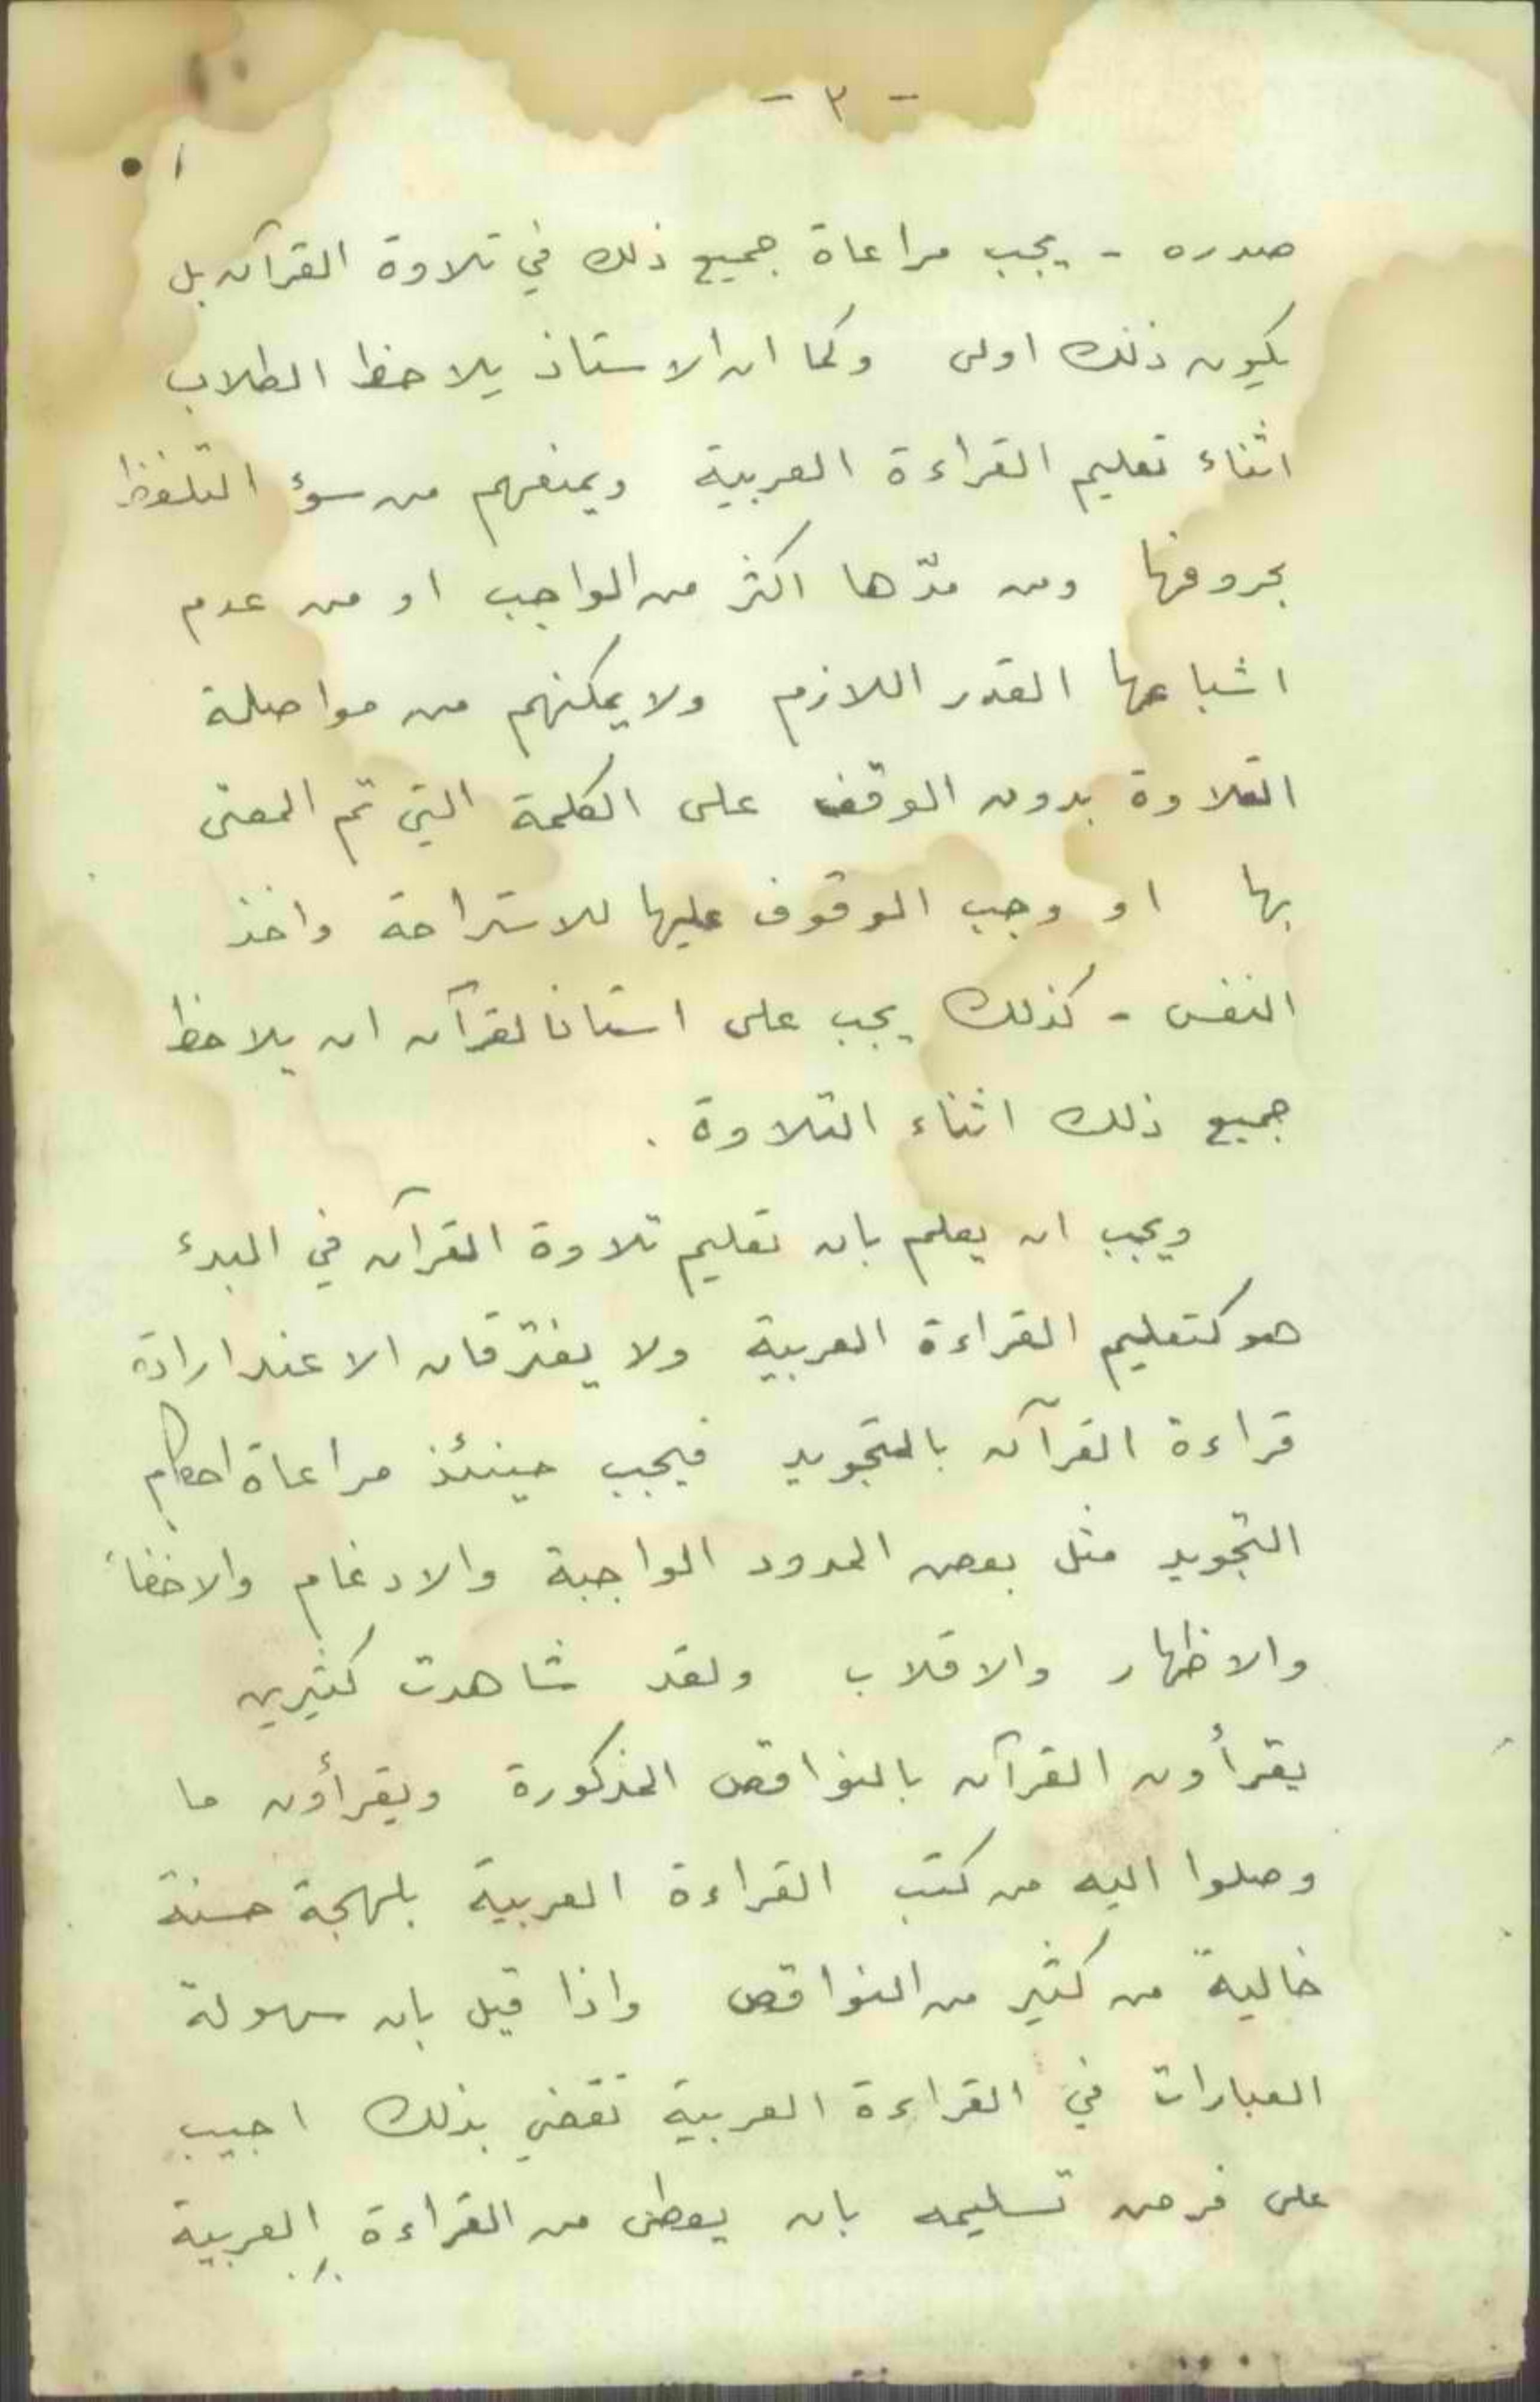 - ٣ -
صدره - يجب مراعاة جميع ذلك في تلاوة القرآن بل
يكون ذلك اولى وكما ان الاستاذ يلاحظ الطلاب
اثناء تعليم القراءة العربية ويمنعهم من سوء التلفظ
بحروفها ومن مدّها اكثر من الواجب او من عدم
اشباعها القدر اللازم ولا يمكنهم من مواصلة
التلاوة بدون الوقف على الكلمة التي تم المعنى
بها او وجب الوقوف عليها للاستراحة واخذ
النفس - كذلك يجب على استاذ القرآن ان يلاحظ
جميع ذلك اثناء التلاوة .
ويجب ان يعلم بان تعليم تلاوة القرآن في البدء
هو كتعليم القراءة العربية ولا يفترقان الا عند ارادة
قراءة القرآن بالتجويد فيجب حينئذ مراعاة احكام
التجويد مثل بعض المدود الواجبة والادغام والاخفاء
والاظهار والاقلاب ولقد شاهدت كثيرين
يقرأون القرآن بالنواقص المذكورة ويقرأون ما
وصلوا اليه من كتب القراءة العربية بلهجة حسنة
خالية من كثير من النواقص واذا قيل بان سهولة
العبارات في القراءة العربية تقضي بذلك اجيب
على فرض تسليمه بان يعطى من القراءة العربية